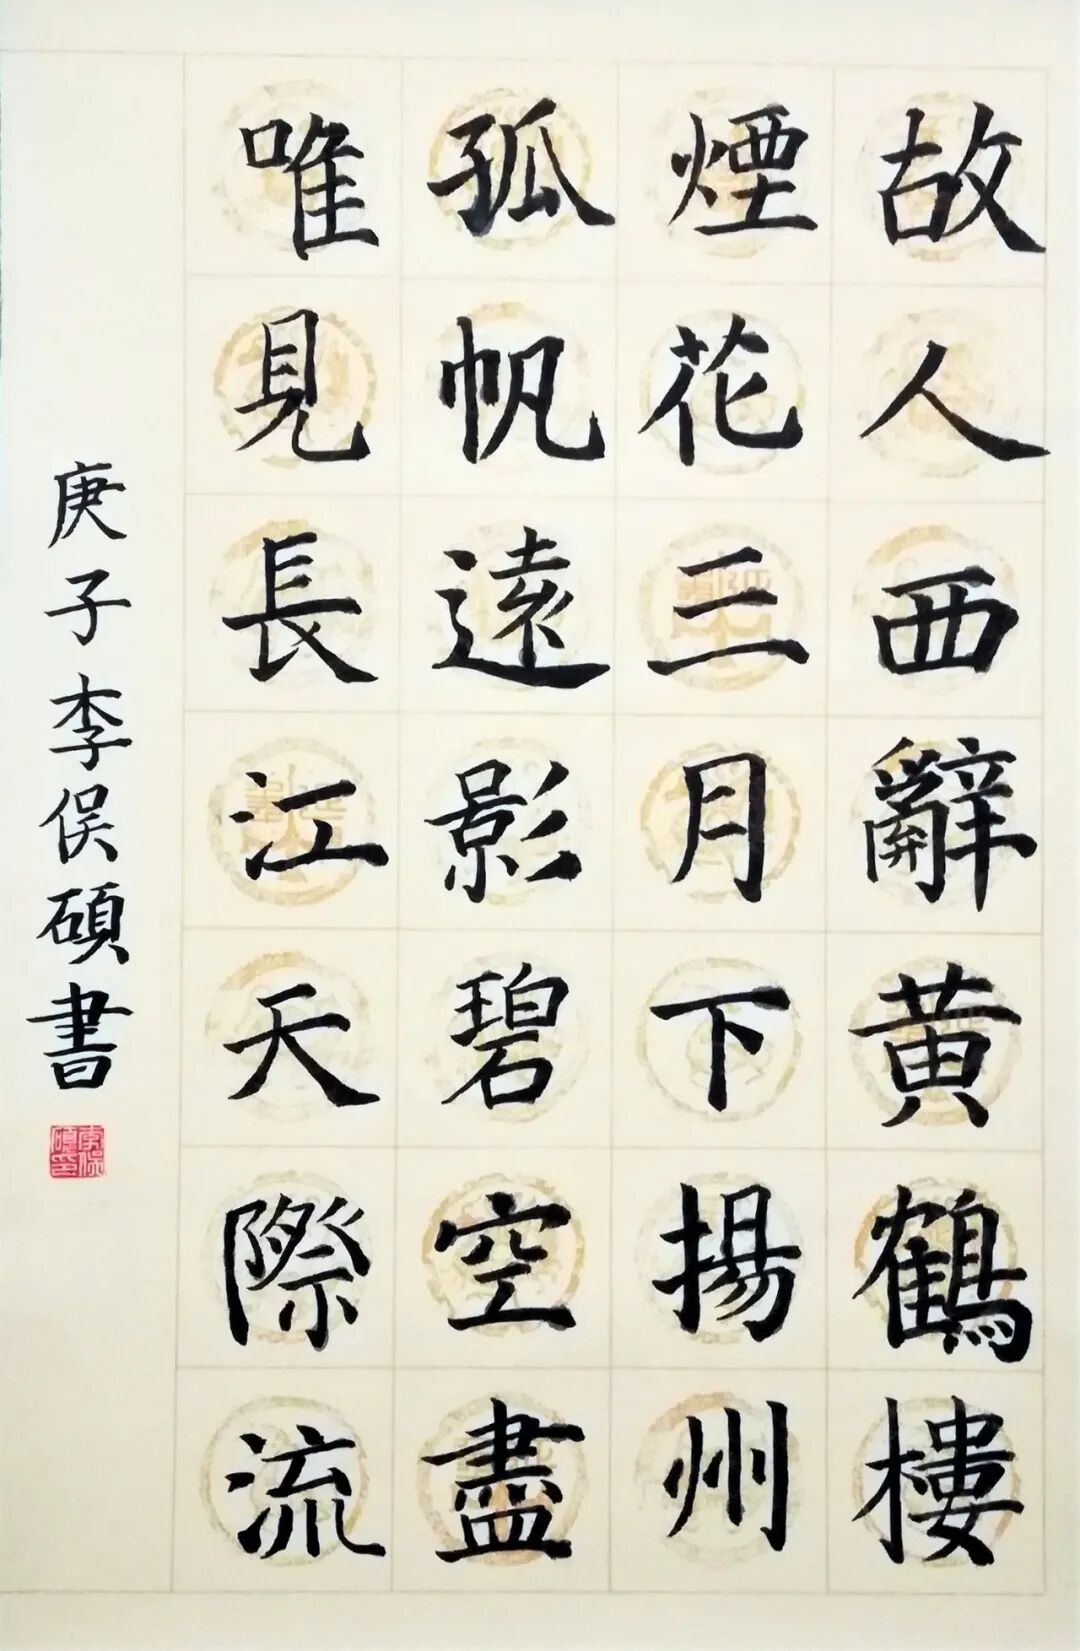 故人西辭黃鶴樓
煙花三月下揚州
孤帆遠影碧空盡
唯見長江天際流
庚子李俣碩書